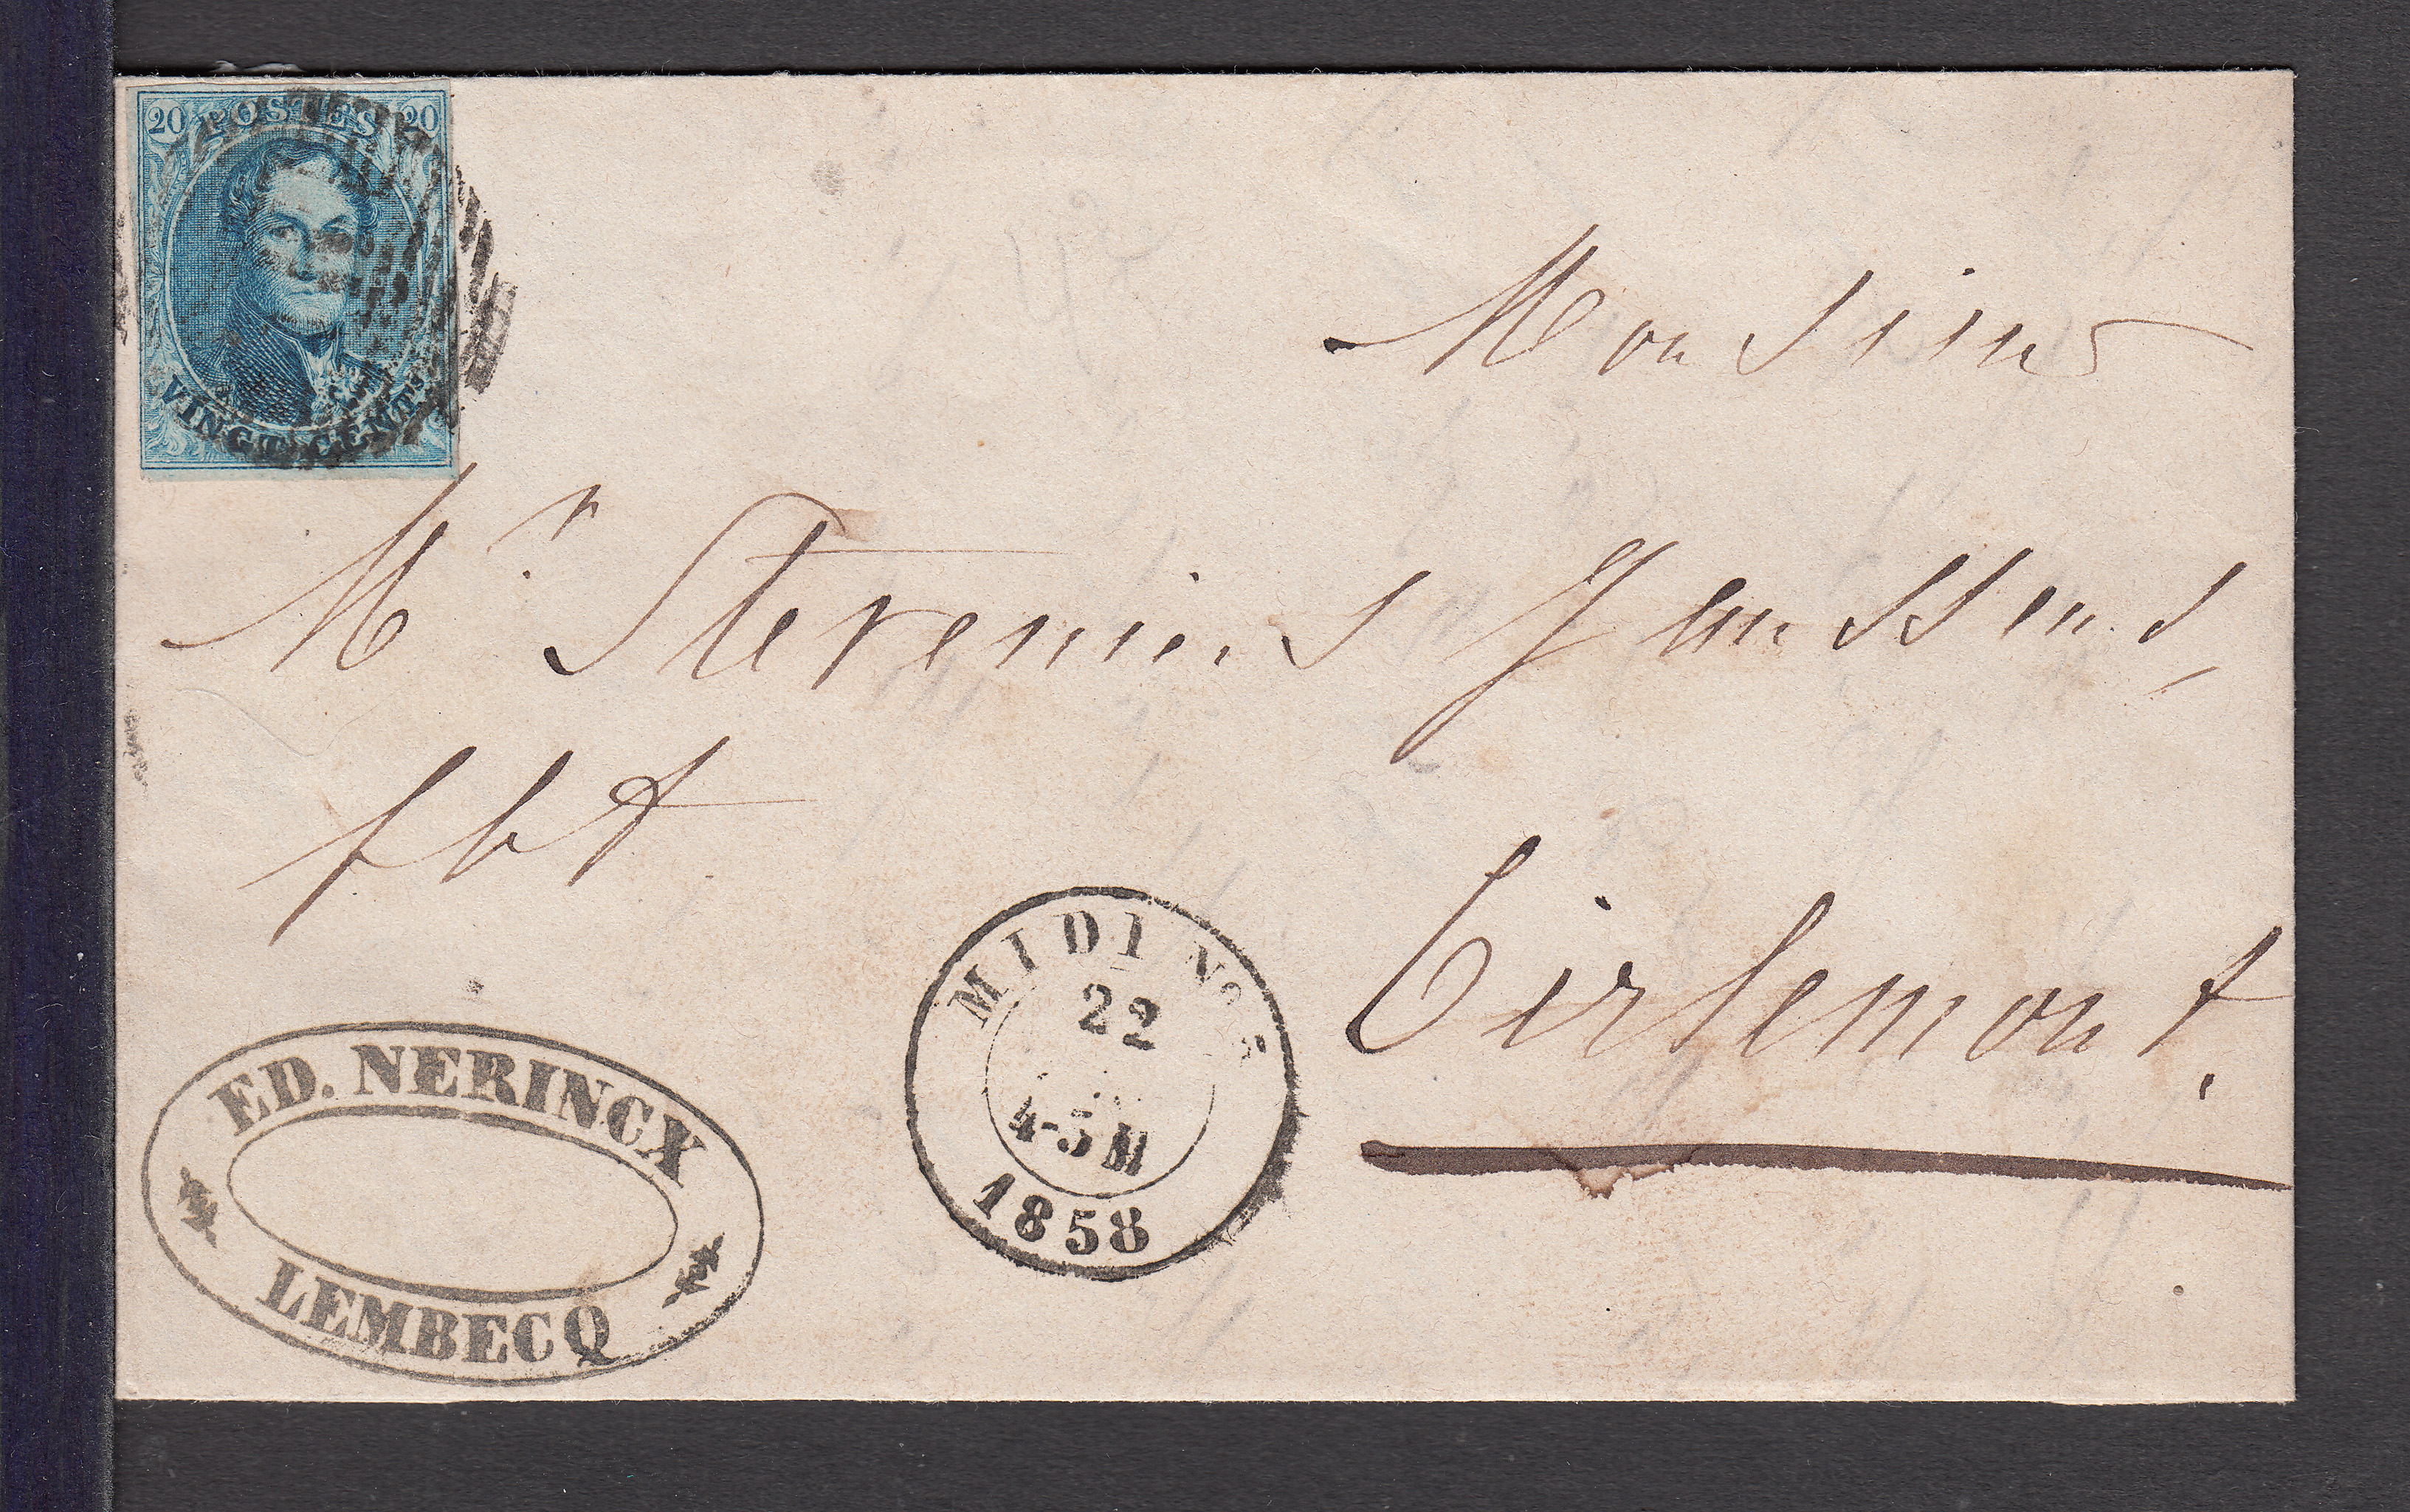 20 POSTES 20
VINGT CENTS
Monsieur
Mr Stevenins Janssens,
fbt
Tirlemont.
MIDI No 5
22
4-5 M
1858
ED. NERINCX
LEMBECQ